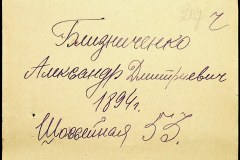 Ч
Близниченко
Александр Дмитриевич
1894г.
Шоссейная 53.